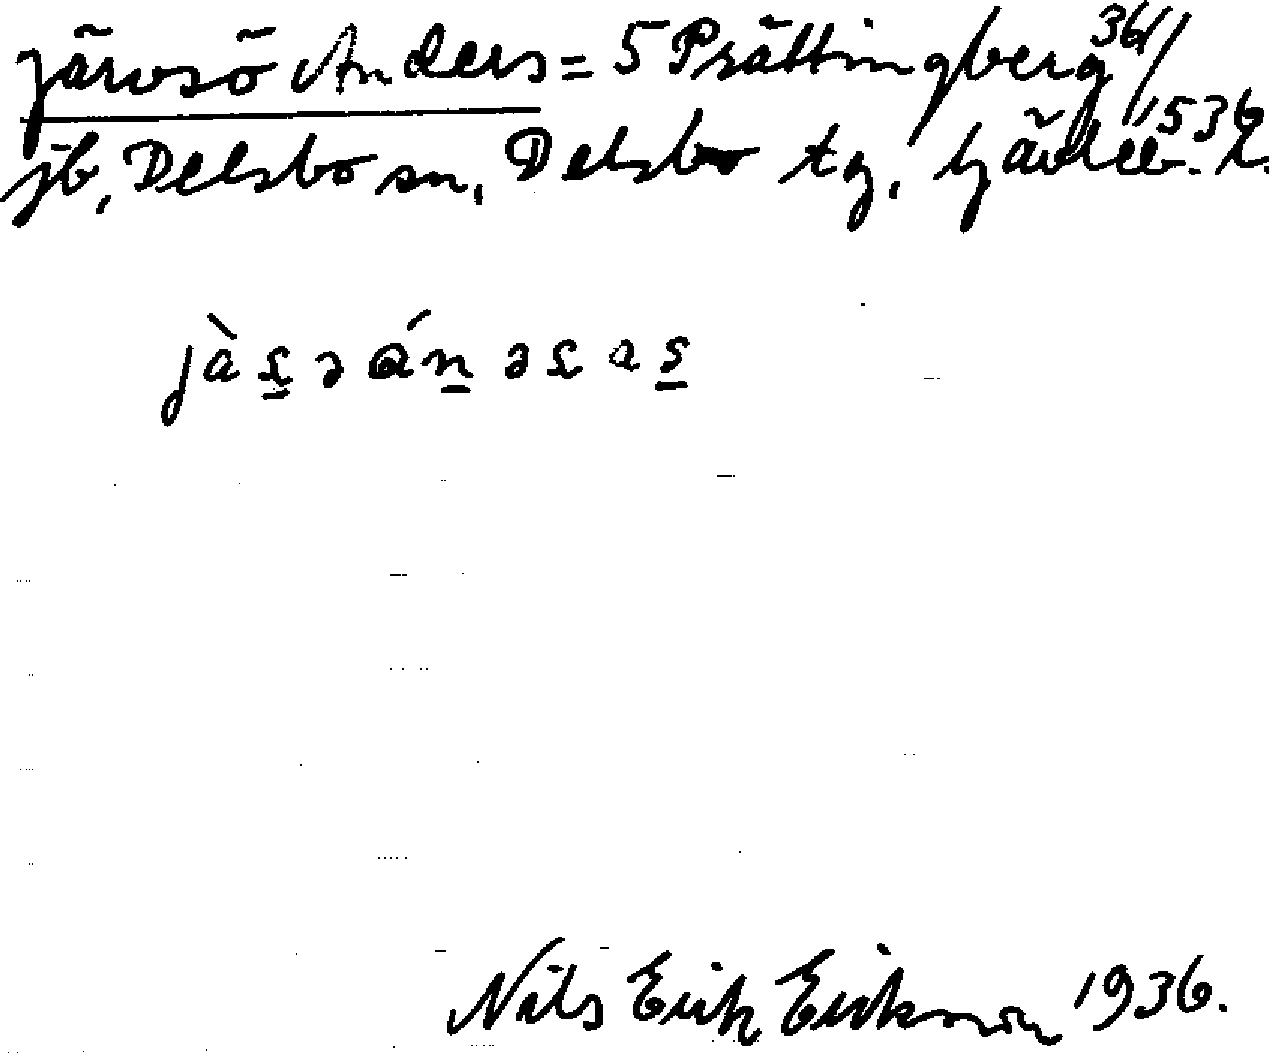 Järvsö Anders = 5 Prästtingberg 36/1536
jb, Delsbo sn, Delsbo tg, Gävleb. l.
Nils Erik Erikson 1936.